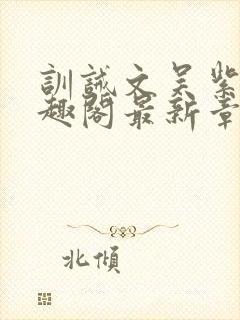 訓誡文吴紫
趣閣最新章
北傾